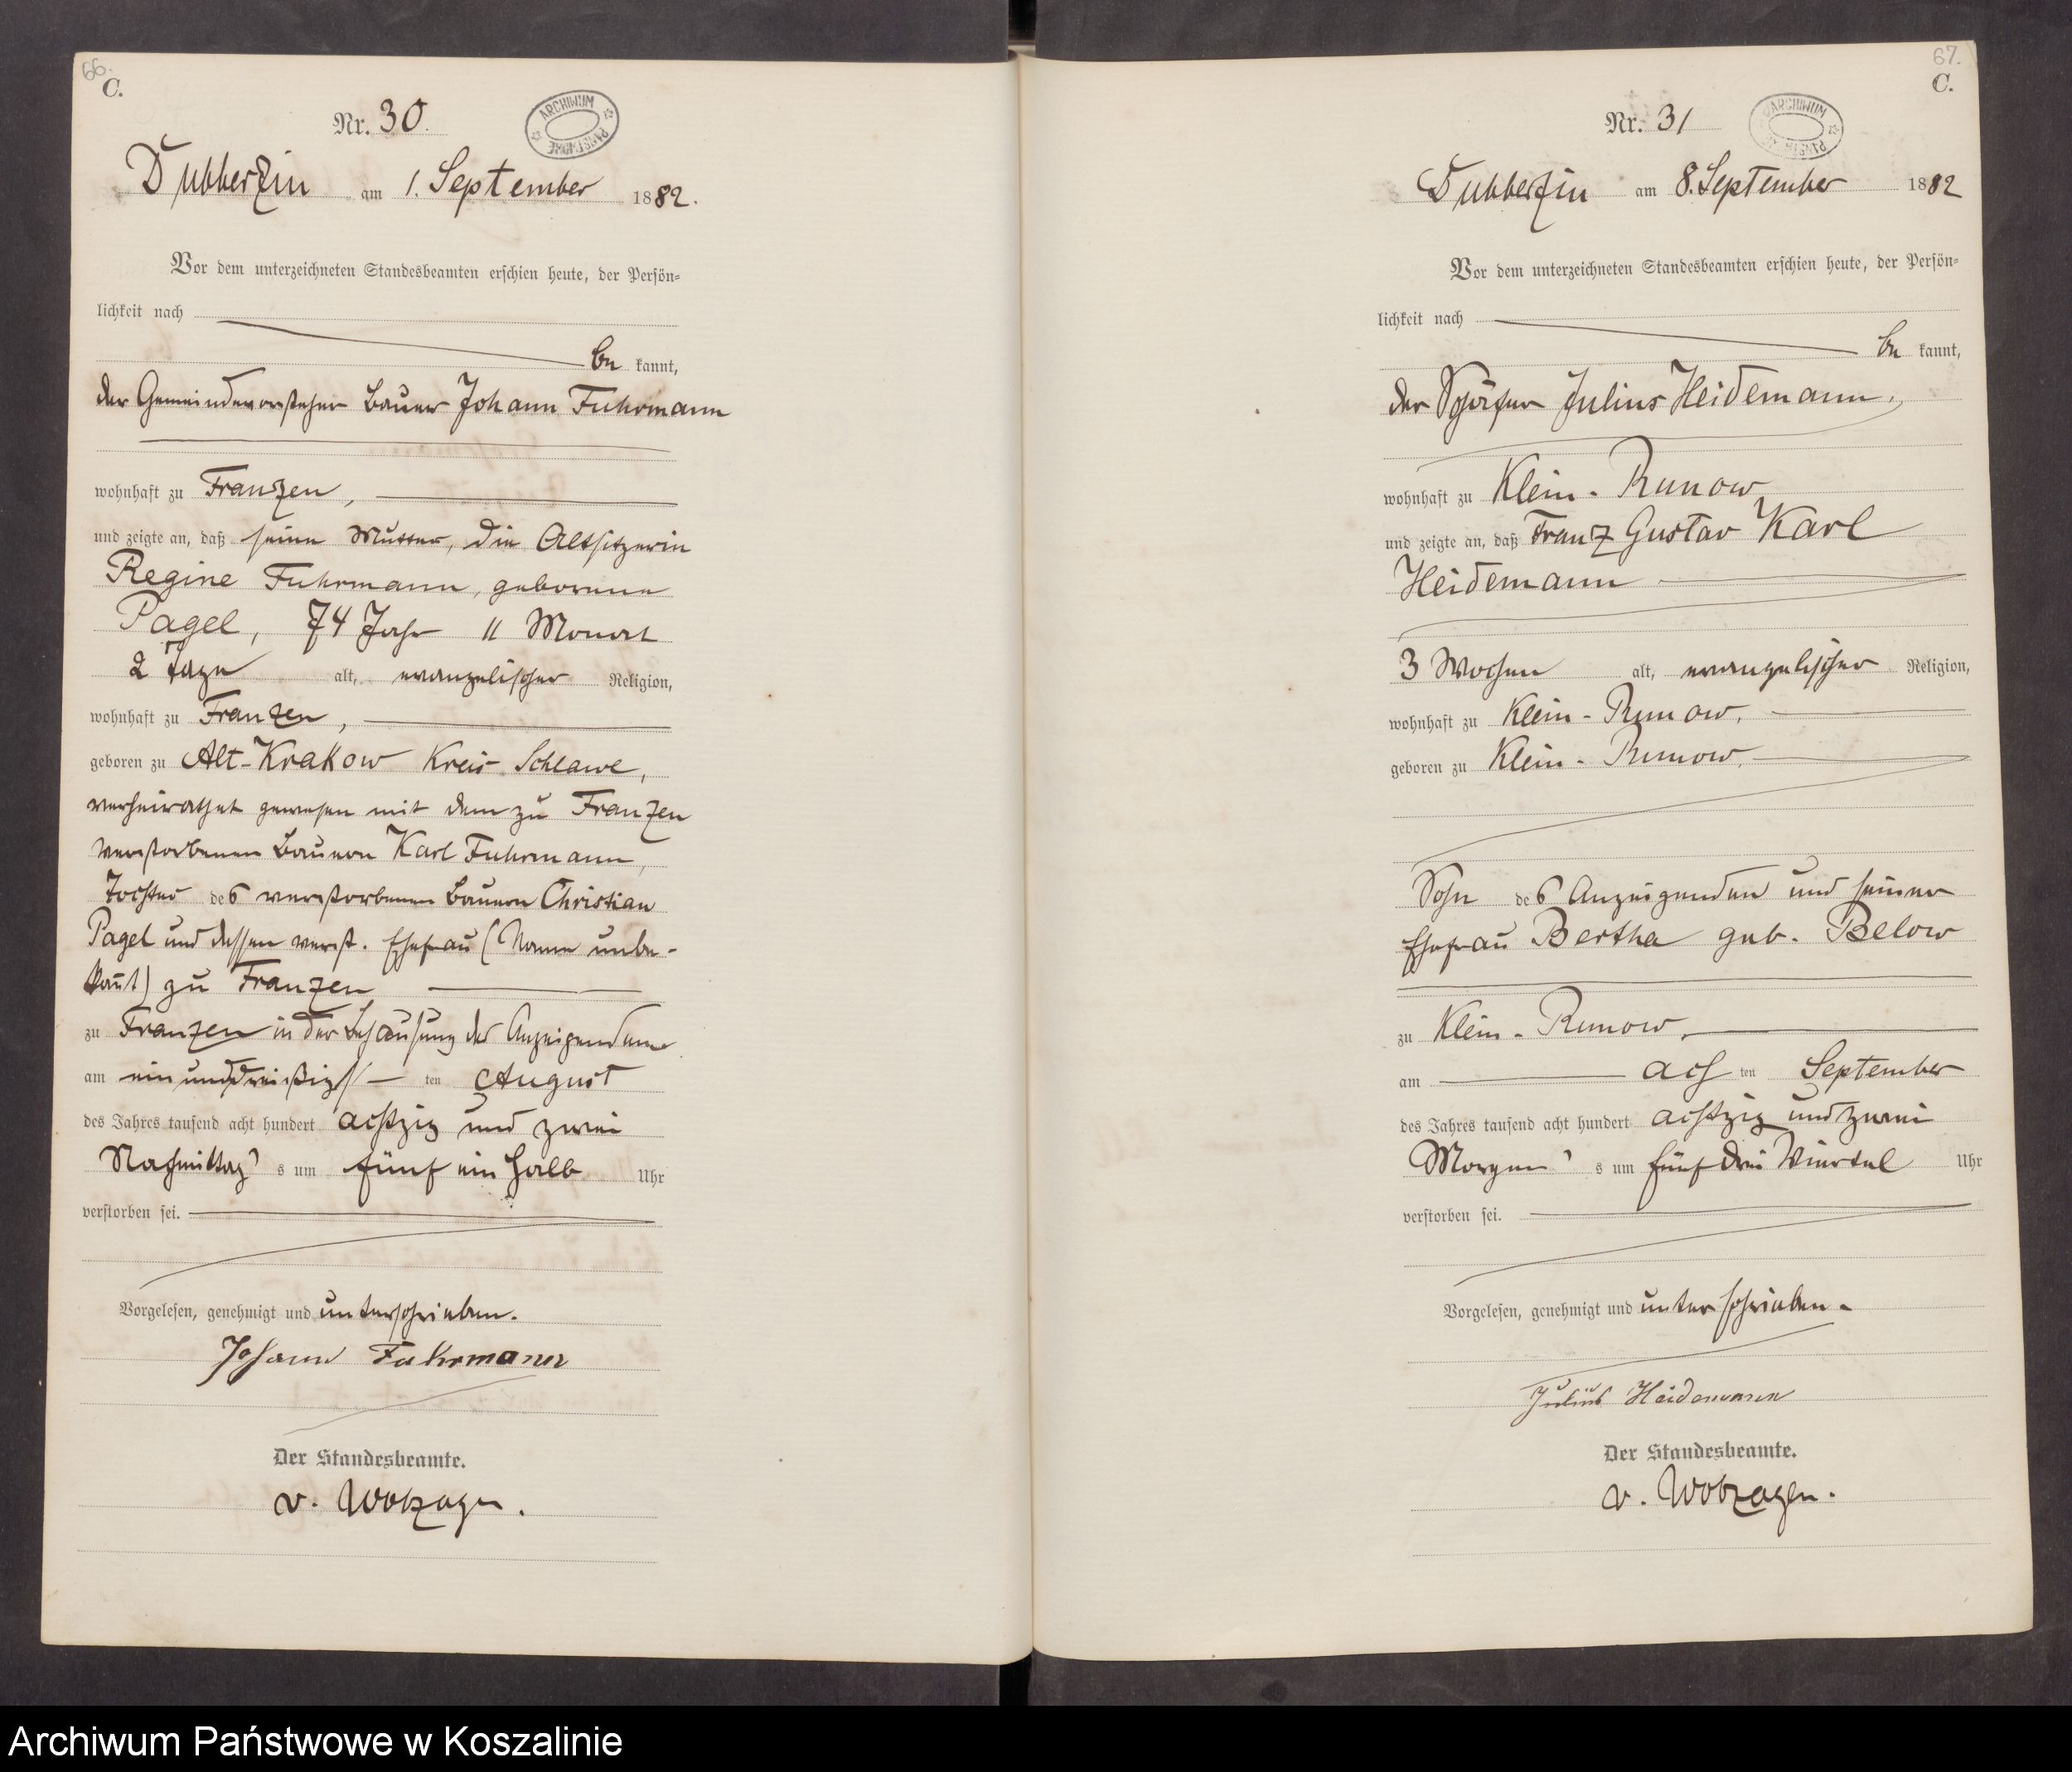 66.
C.
Nr. 30.
ARCHIWUM PAŃSTWOWE
Dubberzin am 1. September 1882.
Vor dem unterzeichneten Standesbeamten erschien heute, der Persön-
lichkeit nach
be kannt,
der Gemeindevorsteher Bauer Johann Fuhrmann
wohnhaft zu Franzen,
und zeigte an, daß seine Mutter, die Altsitzerin
Regine Fuhrmann, geborene
Pagel, 74 Jahr 11 Monat
2 Tage alt, evangelischer Religion,
wohnhaft zu Franzen,
geboren zu Alt-Krakow Kreis Schlawe,
verheirathet gewesen mit dem zu Franzen
verstorbenen Bauern Karl Fuhrmann,
Tochter des verstorbenen Bauern Christian
Pagel und dessen verst. Ehefrau (Name unbe-
kañt) zu Franzen
zu Franzen in der Behausung des Anzeigenden
am ein und dreißigs ten August
des Jahres tausend acht hundert achtzig und zwei
Nachmittag s um fünf ein halb Uhr
verstorben sei.
Vorgelesen, genehmigt und unterschrieben.
Johann Fuhrmann
Der Standesbeamte.
v. Wotzagen.
67.
C.
Nr. 31
ARCHIWUM PAŃSTWOWE
Dubberzin am 8. September 1882
Vor dem unterzeichneten Standesbeamten erschien heute, der Persön-
lichkeit nach
be kannt,
der Schäfer Julius Heidemann,
wohnhaft zu Klein-Runow
und zeigte an, daß Franz Gustav Karl
Heidemann
3 Wochen alt, evangelischer Religion,
wohnhaft zu Klein-Runow,
geboren zu Klein-Runow,
Sohn des Anzeigenden und seiner
Ehefrau Bertha geb. Below
zu Klein-Runow,
am ach ten September
des Jahres tausend acht hundert achtzig und zwei
Morgen s um fünf drei Viertel Uhr
verstorben sei.
Vorgelesen, genehmigt und unterschrieben.
Julius Heidemann
Der Standesbeamte.
v. Wobzagen.
Archiwum Państwowe w Koszalinie